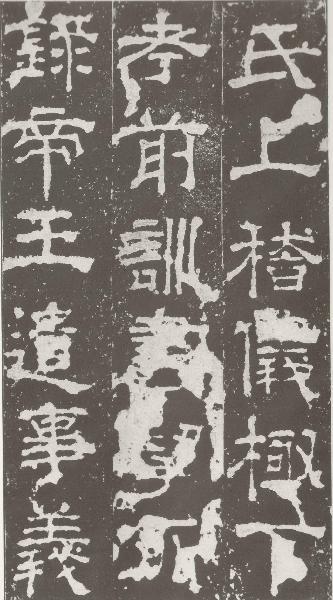 氏上稽儀極下
考前訓所
錄帝王遺事義